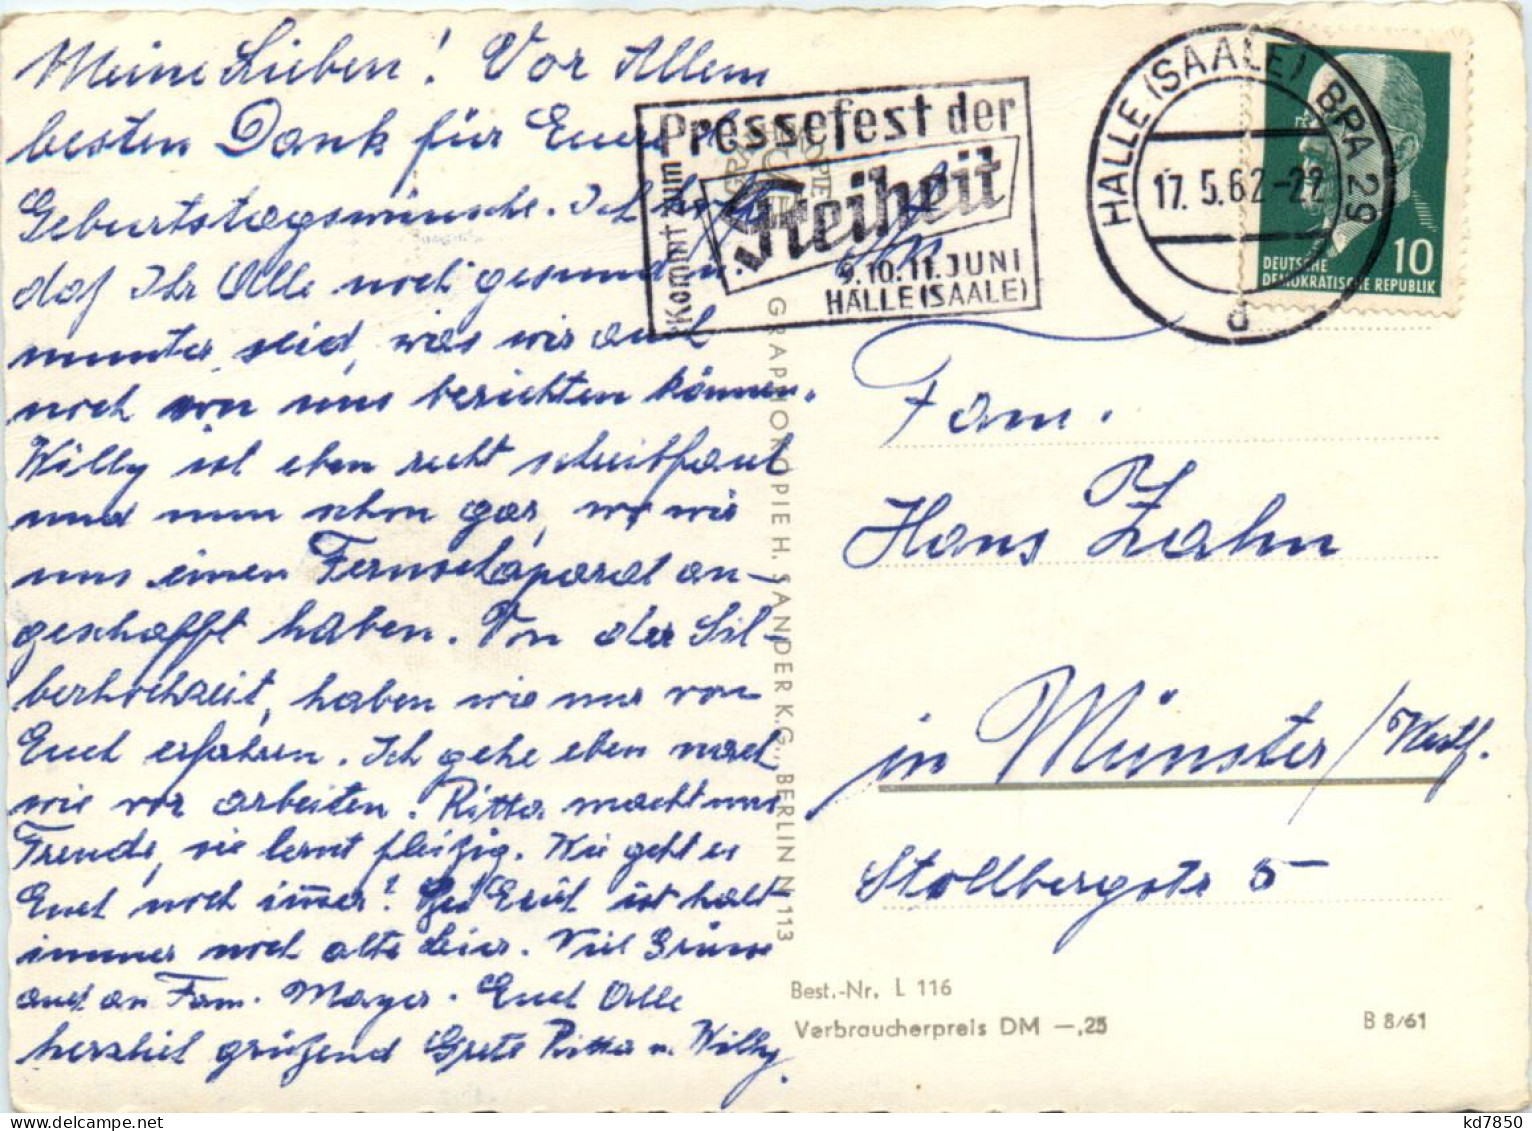 Meine Lieben! Vor Allem
besten Dank für Eure
Geburtstagswünsche. Ich hoffe
daß Ihr Alle noch gesund u.
munter seid, was wir auch
noch von uns berichten können.
Willy ist eben recht schreibfaul
und nun schon gar, wo wir
uns einen Fernsehaparat an-
geschafft haben. Von der Sil-
berhochzeit, haben wir nur von
Euch erfahren. Ich gehe eben nach
wie vor arbeiten. Ritta macht uns
Freude, sie lernt fleißig. Wie geht es
Euch noch immer? Bei Euch ist halt
immer noch alte Leier. Viel Grüsse
auch an Fam. Mayer. Euch Alle
herzlich grüßend Grete Ritta u. Willy.
Kommt zum
Pressefest der
Freiheit
9.10.11. JUNI
HALLE (SAALE)
HALLE (SAALE) BPA 29
17.5.62-22
d
10
DEUTSCHE
DEMOKRATISCHE REPUBLIK
GRAPHOKOPIE H. SANDER K.G., BERLIN N 113
An
Fam.
Hans Zahn
in Münster/Westf.
Stollbergstr 5
Best.-Nr. L 116
Verbraucherpreis DM —,25
B 8/61
kd7850